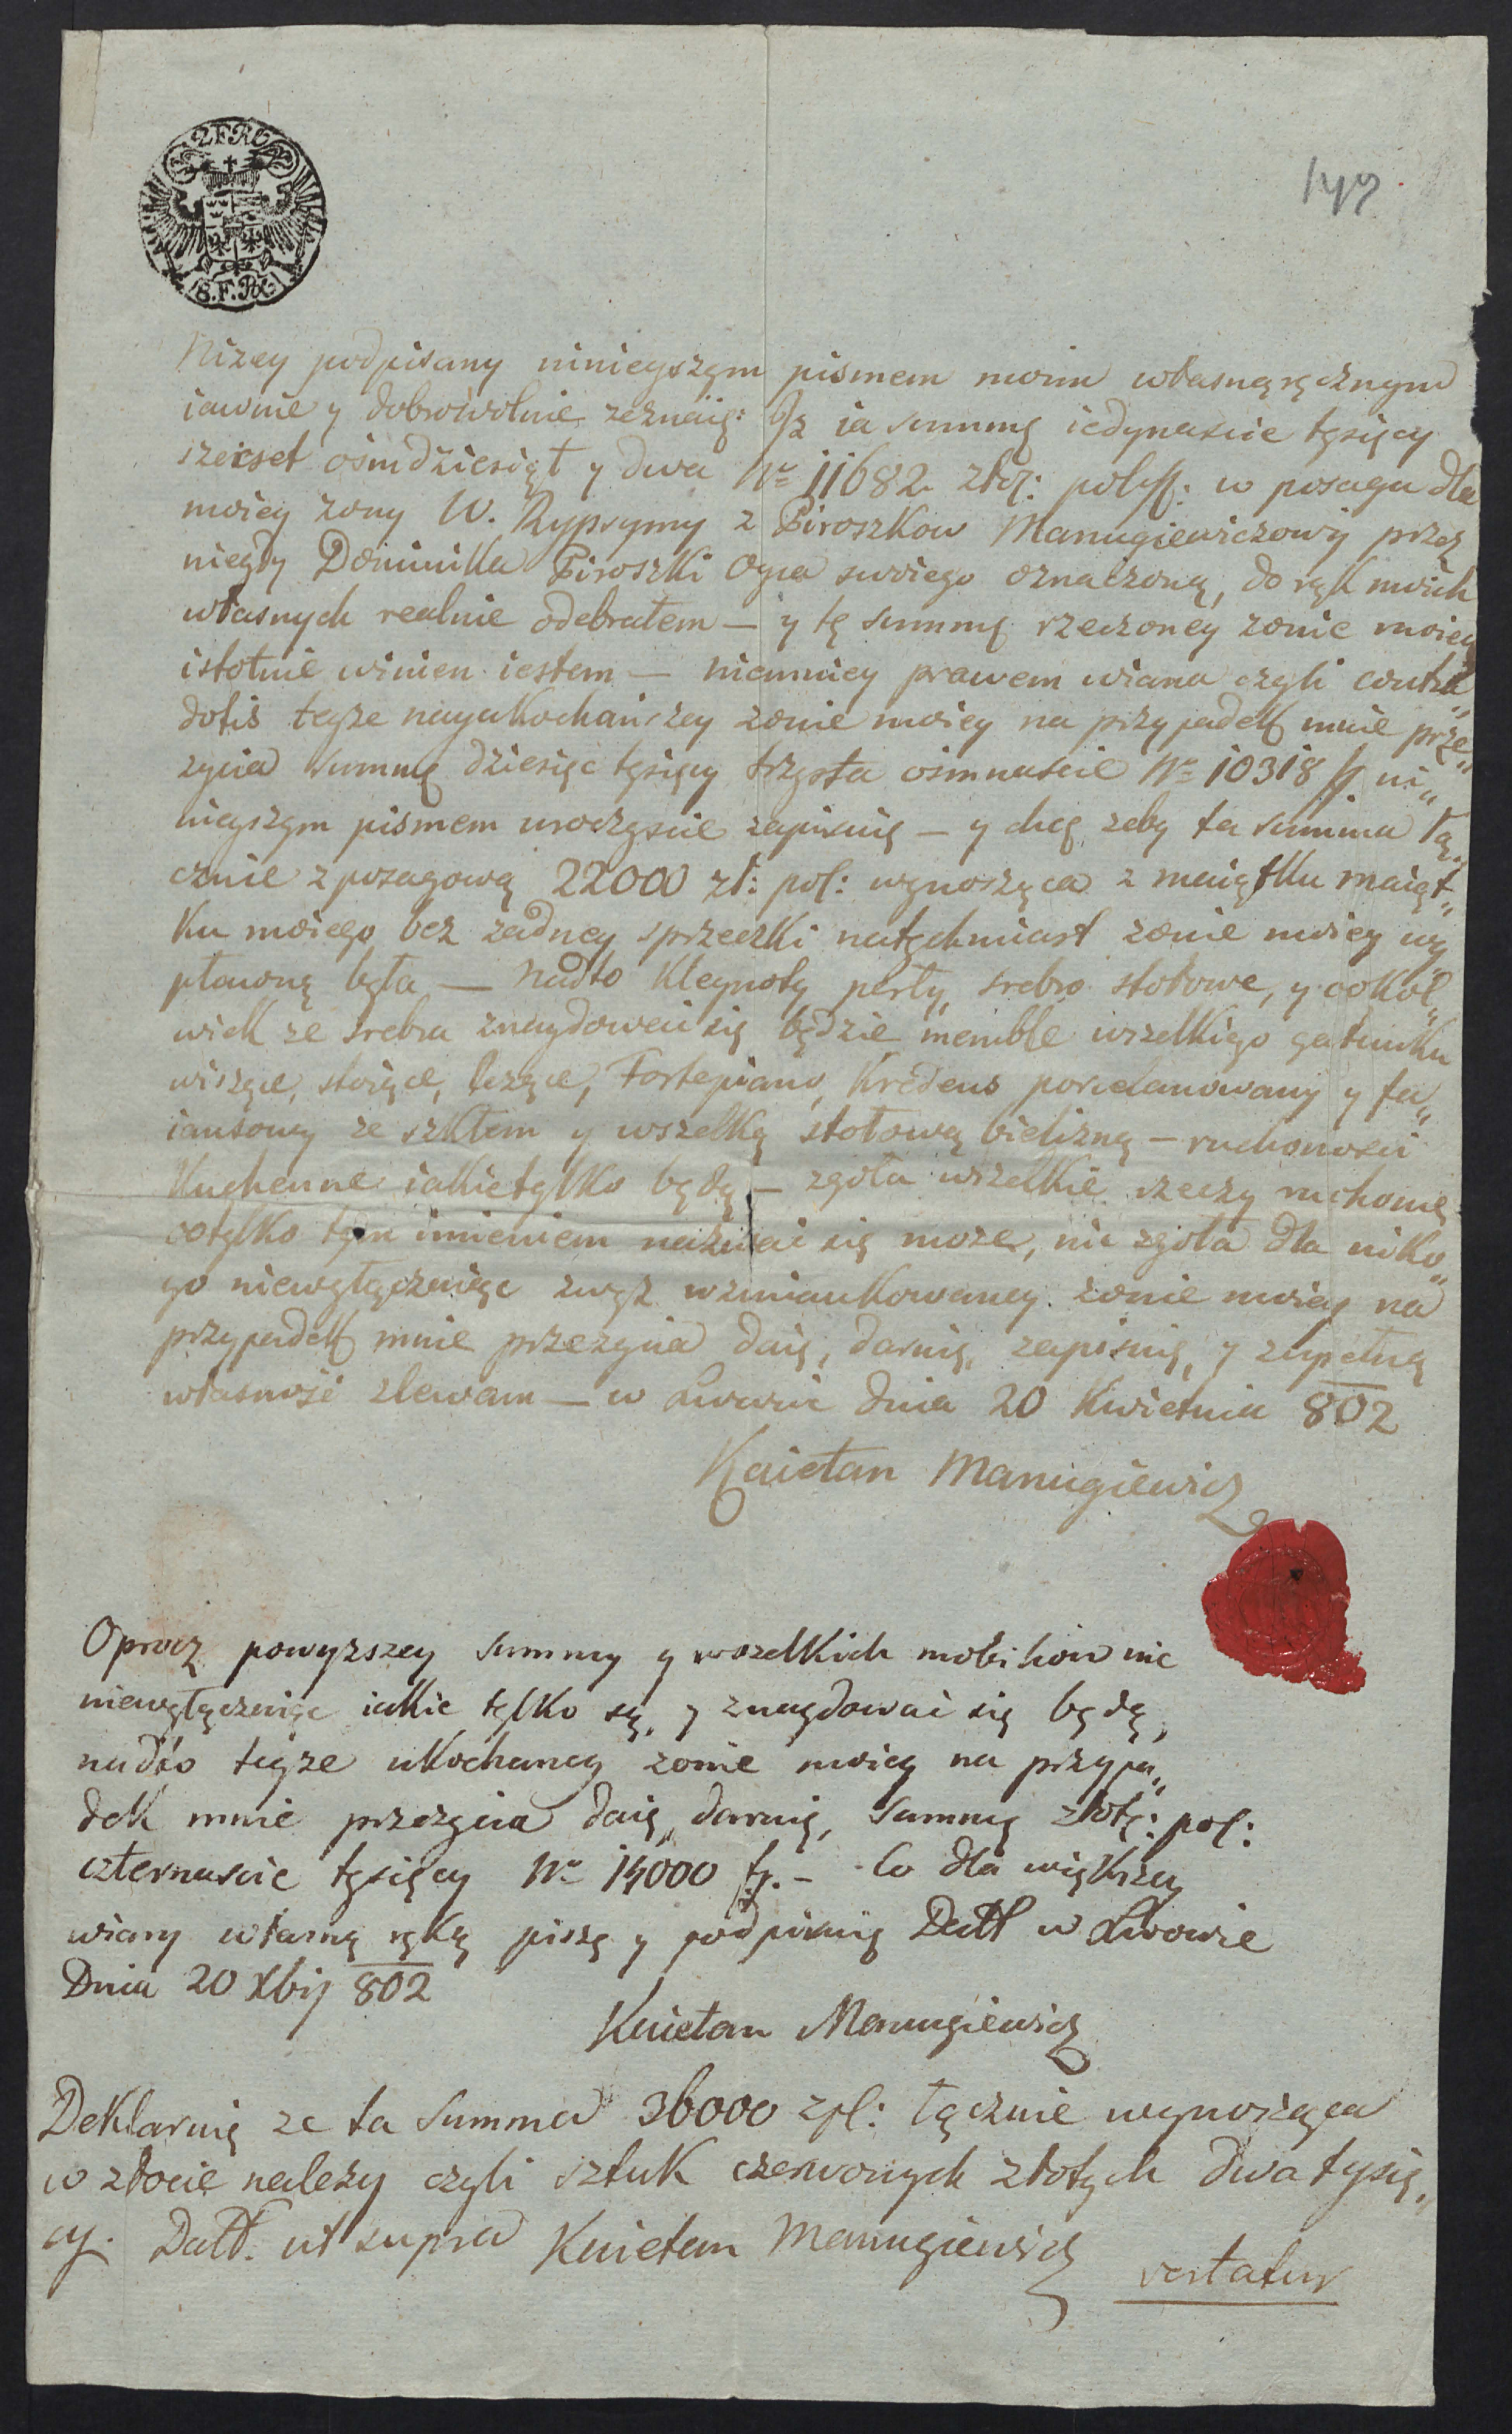 2FRC
8.F.RX.
147.
Nizey podpisany ninieyszym pismem moim własnęręcznym
iawnie y dobrowolnie zeznaię: Jz ia summę iedynascie tysięcy
szeset ośmdziesiąt y dwa Nº 11682 złoż: polsk: w posagu dla
moiey zony W. Rypsymy z Piroszkow Manugiewiczowy przez
niegdy Dominika Piroszki Oyca swoiego oznaczoną, do rąk moich
własnych realnie odebrałem — y tę summę rzeczoney zonie moiey
istotnie winien iestem — niemniey prawem wiana czyli contra
dotis teyze nayukochańszey zonie moiey na przypadek mnie prze„
zycia summę dziesięc tysięcy trzysta ośmnaście Nº 10318 f ni„
nieyszym pismem uroczyscie zapisuię — y chcę zeby ta summa łą„
cznie z posagową 22000 zł: pol: wynosząca z maiątku maiąt„
ku moiego bez zadney sprzeczki natychmiast zonie moiey wy„
płaconą była — nadto kleynoty, perły, srebro stołowe, y cokol„
wiek ze srebra znaydować się będzie, meuble wszelkiego gatunku
wiszące, stoiące, lezące, Fortepiano, Kredens porcelanowany y fa„
iansowy ze szkłem y wszelką stołową bielizną — ruchomosci
Kuchenne iakie tylko będą — zgoła wszelkie rzeczy ruchome
co tylko tym imieniem nazwać się może, nic zgoła dla niko„
go niewyłączaiąc zwyż wzmiankowaney zonie moiey na
przypadek mnie przezycia daię, daruię, zapisuię, y zupełną
własność zlewam — w Lwowie dnia 20 Kwietnia 802
Kaietan Manugiewicz
Oprocz powyzszey summy y wszelkich mobiliow nic
niewyłączaiąc iakie tylko są, y znaydować się będą,
nadto teyze ukochaney zonie moiey na przypa„
dek mnie przezycia daię, daruię, Summę złoty: pol:
czternascie tysięcy Nº 14000 fp. — Co dla większey
wiary własną ręką piszę y podpisuię Datt w Lwowie
Dnia 20 Xbij 802
Kaietan Manugiewicz
Deklaruię ze ta summa 36000 zpl: łącznie wynosząca
w złocie nalezy czyli sztuk czerwonych złotych dwa tysią„
cy. Datt. ut supra Kaietan Manugiewicz
vertatur